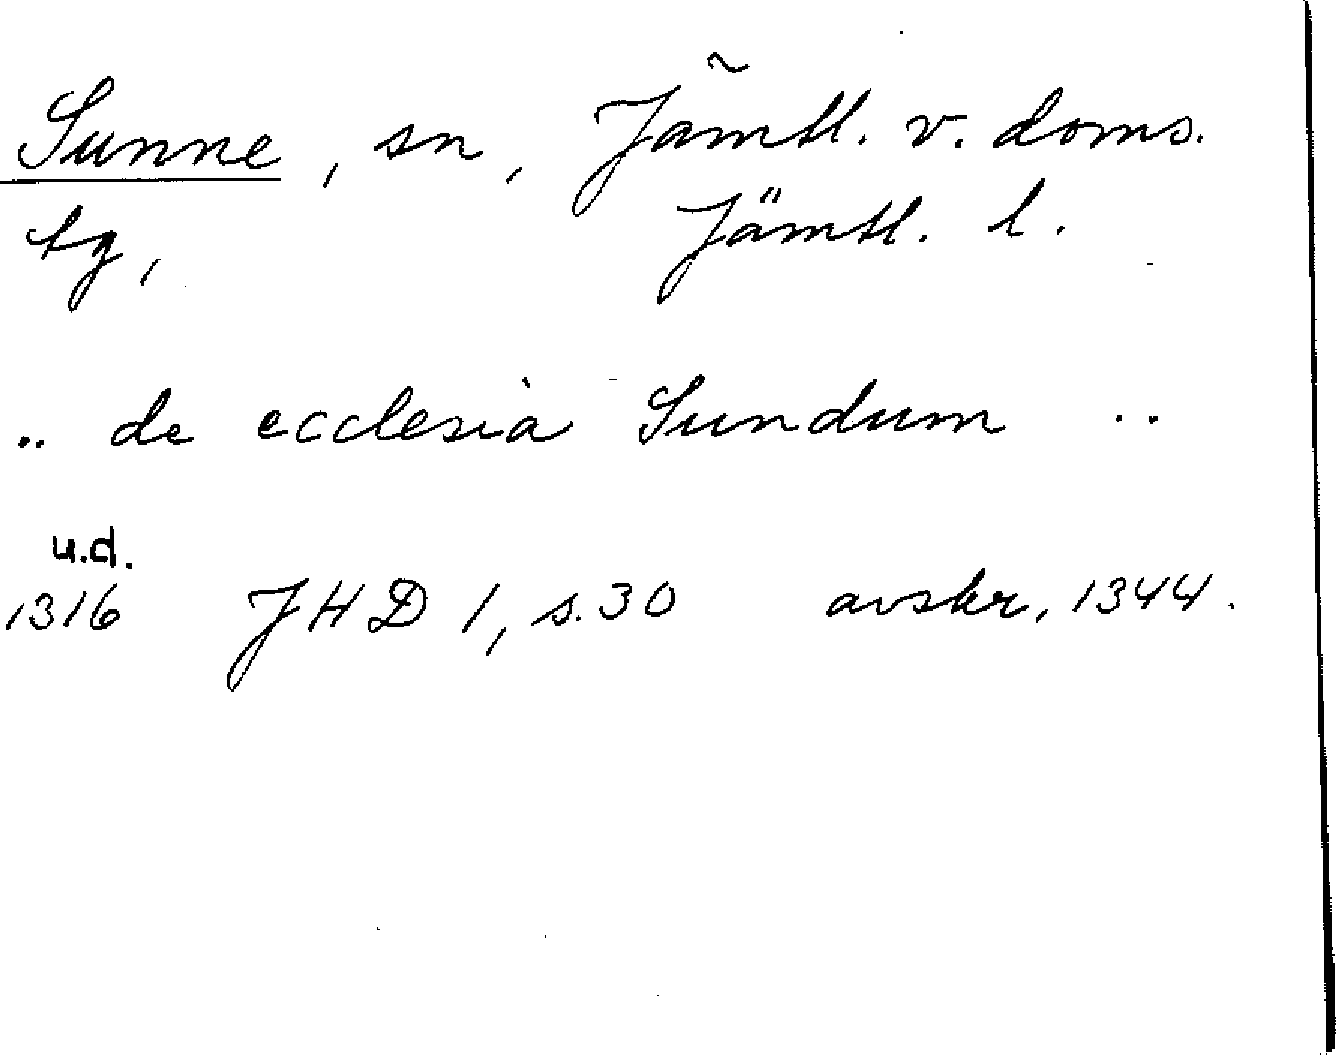 Sunne, sn, Jämtl. v. doms.
tg, Jämtl. l.
.. de ecclesia Sundum ..
u.d.
1316 JHD 1, s. 30 avskr. 1344.